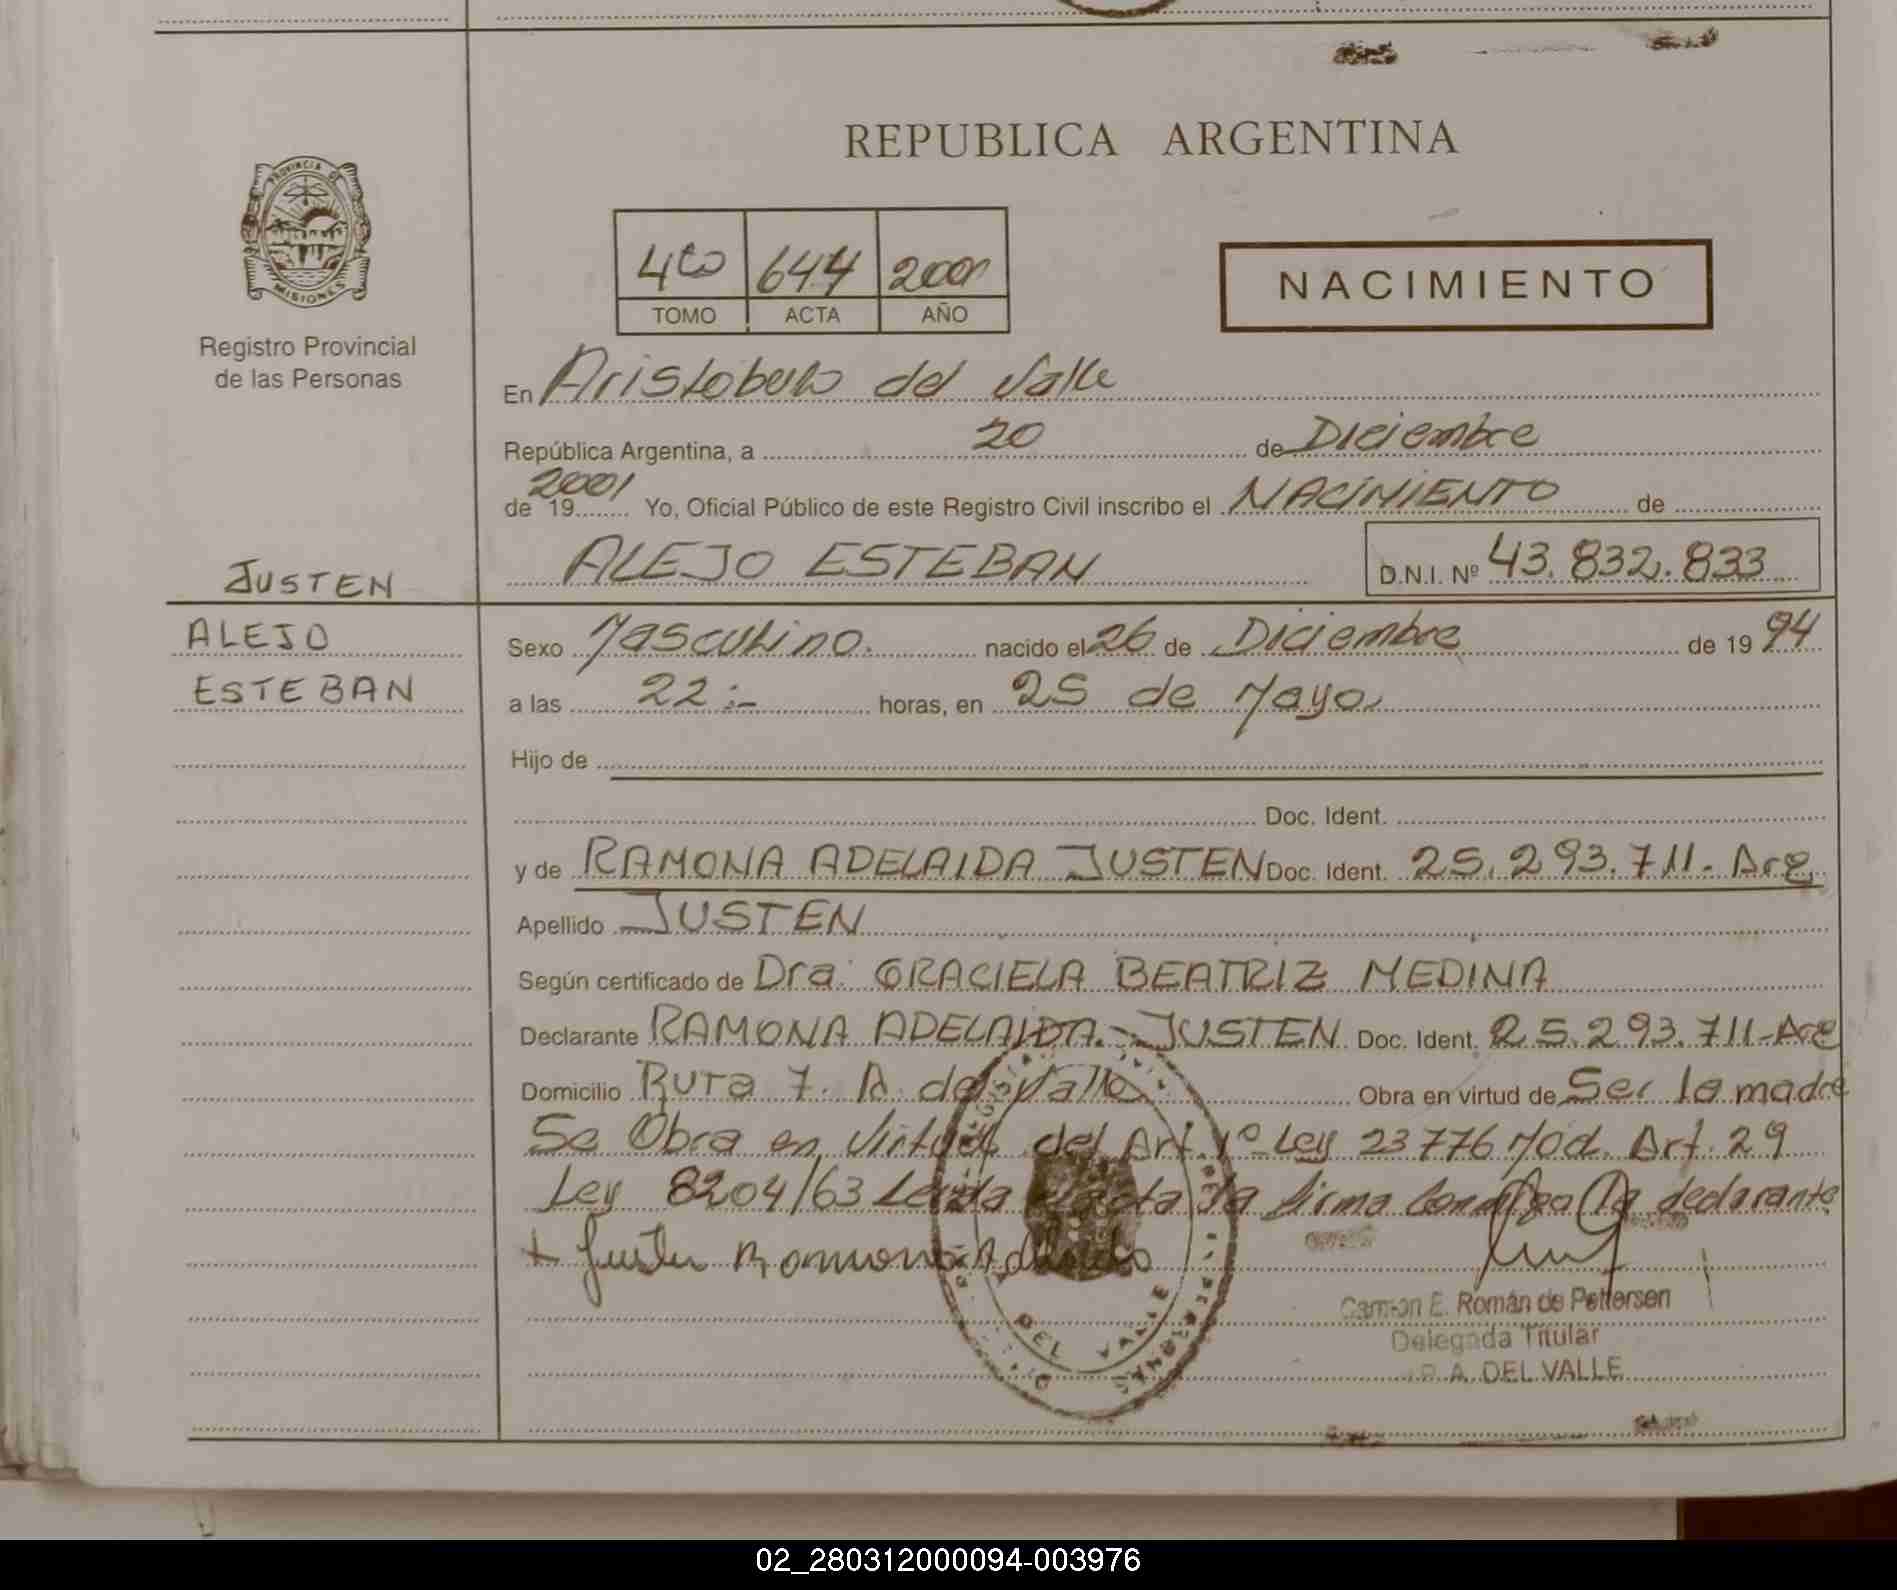 REPUBLICA ARGENTINA
PROVINCIA DE
MISIONES
Registro Provincial
de las Personas
4to 644 2001
TOMO ACTA AÑO
NACIMIENTO
En Aristobulo del Valle
República Argentina, a 20 de Diciembre
de 19 2001 Yo, Oficial Público de este Registro Civil inscribo el NACIMIENTO de
ALEJO ESTEBAN D.N.I. Nº 43.832.833
JUSTEN
ALEJO
ESTEBAN
Sexo Masculino. nacido el 26 de Diciembre de 19 94
a las 22:- horas, en 25 de Mayo.
Hijo de
Doc. Ident.
y de RAMONA ADELAIDA JUSTEN Doc. Ident. 25.293.711- Arg
Apellido JUSTEN
Según certificado de Dra. GRACIELA BEATRIZ MEDINA
Declarante RAMONA ADELAIDA JUSTEN Doc. Ident. 25.293.711-Arg
Domicilio Ruta 7. A. del Valle Obra en virtud de Ser la madre
Se Obra en Virtud del Art. 1º Ley 23776 Mod. Art. 29
Ley 8204/63 Leida el acta la firma Conmigo la declarante
+ Justen Ramona Adelaida
DEL VALLE
Carmen E. Román de Pettersen
Delegada Titular
A. DEL VALLE
02_280312000094-003976